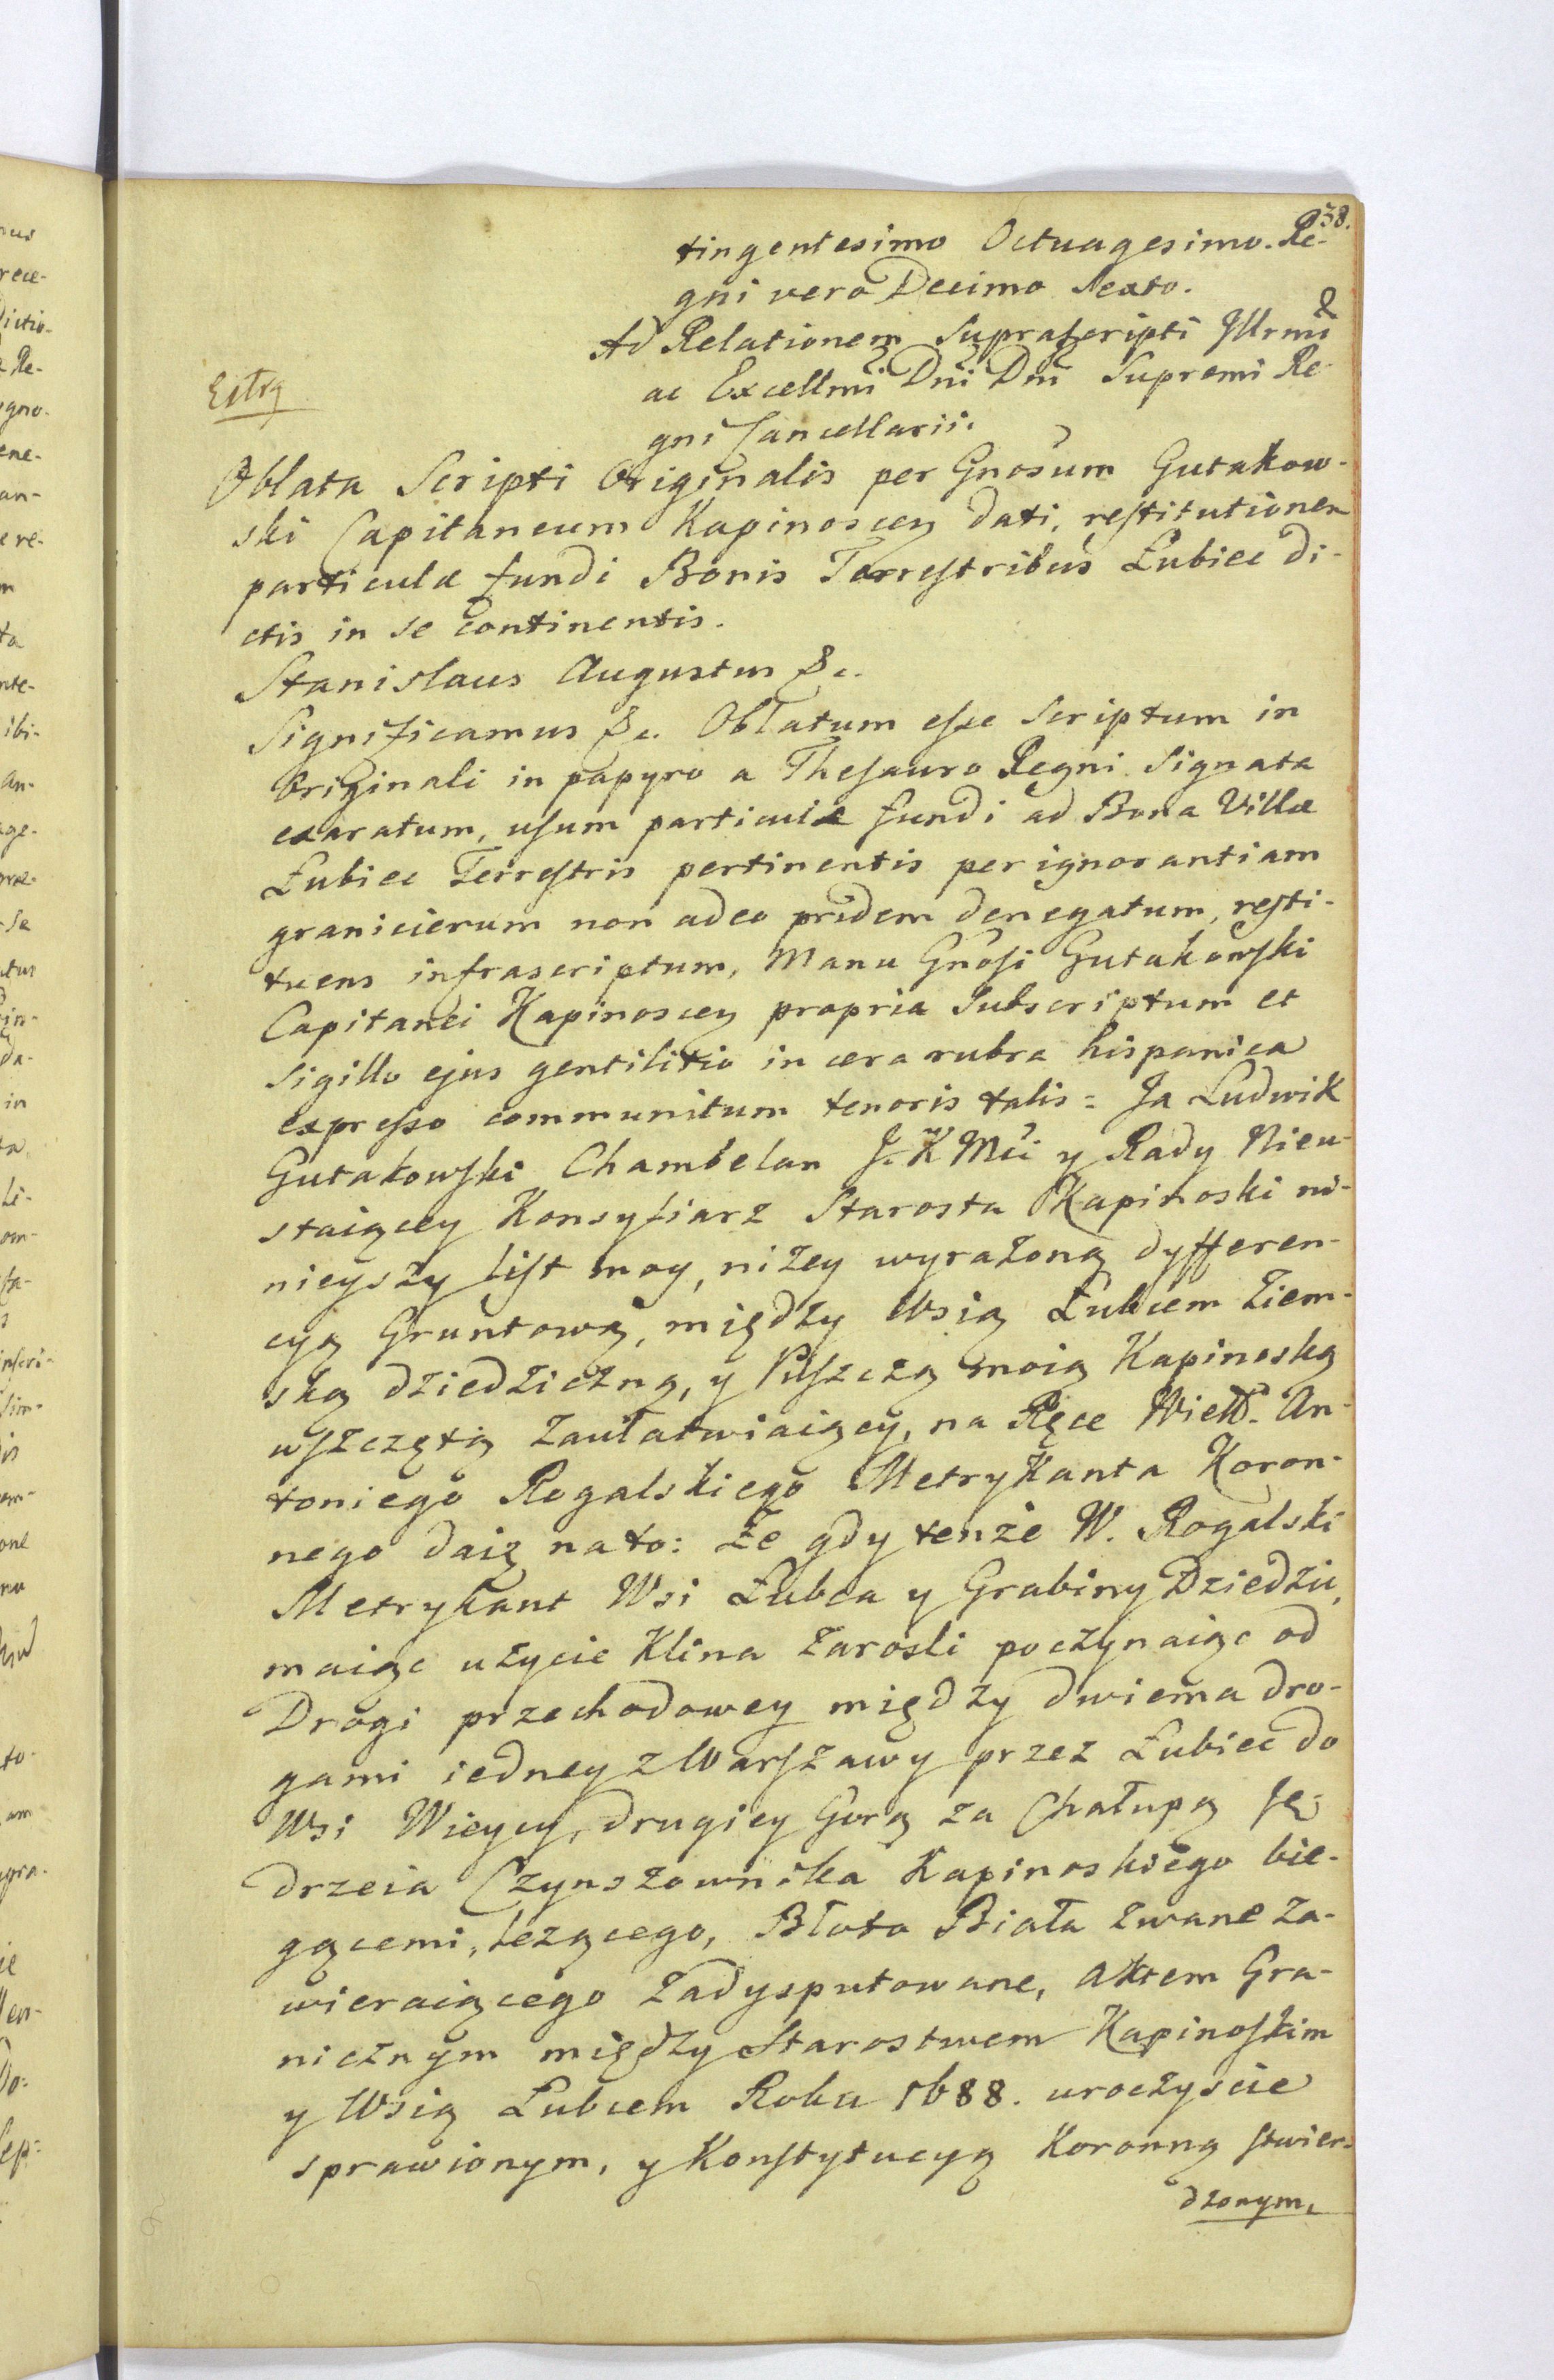 38.
tingentesimo Octuagesimo. Re-
gni vero Decimo Sexto.
Ad Relationem Suprascripti Illrmi
ac Excellmi Dni Dni Supremi Re-
gni Cancellarii.
Extra
Oblata Scripti Originalis per Gnosum Gutakow-
ski Capitaneum Kapinoscen dati, restitutionem
particulæ fundi Bonis Terrestribus Łubiec di-
ctis in se continentis.
Stanislaus Augustus &c.
Significamus &c. Oblatum esse Scriptum in
Originali in papyro a Thesauro Regni Signata
exaratum, usum particulæ fundi ad Bona Villæ
Łubiec Terrestris pertinentis per ignorantiam
granicierum non adeo pridem denegatum, resti-
tuens infrascriptum, Manu Gnosi Gutakowski
Capitanei Kapinoscen propria Subscriptum et
Sigillo ejus gentilitio in cera rubra hispanica
expresso communitum tenoris talis = Ja Ludwik
Gutakowski Chambelan J. K Mci y Rady Nieu-
staiącey Konsyliarz Starosta Kapinoski ni-
nieyszy list moy, niżey wyrażoną dyfferen-
cyą Gruntową, między Wsią Łubcem Ziem-
ską dziedziczną, y Puszczą moią Kapinoską
wszczętą załatwiaiący, na Ręce Wielb. An-
toniego Rogalskiego Metrykanta Koron-
nego daię na to: że gdy tenże W. Rogalski
Metrykant Wsi Łubca y Grabiny Dziedzic,
maiąc użycie Klina Zarośli poczynaiąc od
Drogi przechodowey między dwiema dro-
gami iedney z Warszawy przez Łubiec do
Wsi Wieycy, drugiey Gorą za Chałupą Ję-
drzeia Czynszownika Kapinoskiego bie-
gącemi, leżącego, Błoto Biała zwane za-
wieraiącego zadysputowane, Aktem Gra-
nicznym między Starostwem Kapinoskim
y Wsią Łubcem Roku 1688. uroczyście
sprawionym, y Konstytucyą Koronną stwier-
dzonym,